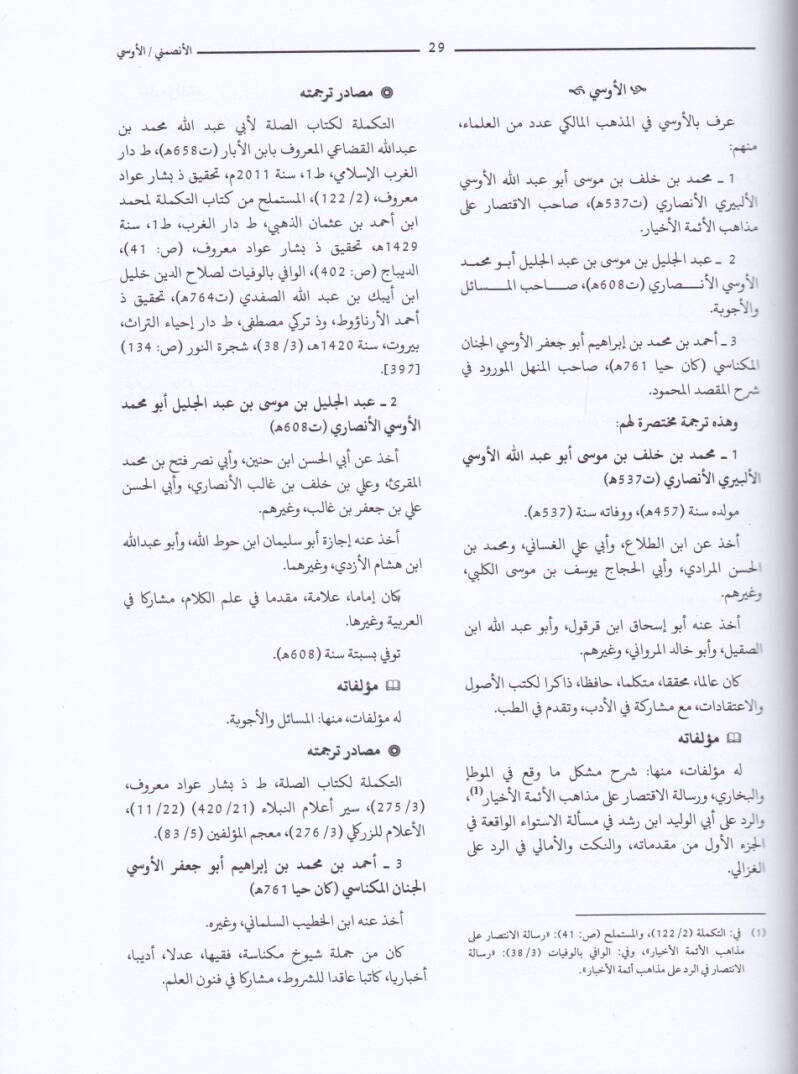 الأنصمني / الأوسي
29
الأوسي
عرف بالأوسي في المذهب المالكي عدد من العلماء،
منهم:
1 ـ محمد بن خلف بن موسى أبو عبد الله الأوسي
الألبيري الأنصاري (ت537هـ)، صاحب الاقتصار على
مذاهب الأئمة الأخيار.
2 ـ عبد الجليل بن موسى بن عبد الجليل أبـو محمد
الأوسي الأنـــصاري (ت608هـ)، صـاحب المـــسائل
والأجوبة.
3 ـ أحمد بن محمد بن إبراهيم أبو جعفر الأوسي الجنان
المكناسي (كان حيا 761هـ)، صاحب المنهل المورود في
شرح المقصد المحمود.
وهذه ترجمة مختصرة لهم:
1 ـ محمد بن خلف بن موسى أبو عبد الله الأوسي
الألبيري الأنصاري (ت537هـ)
مولده سنة (457هـ)، ووفاته سنة (537هـ).
أخذ عن ابن الطلاع، وأبي علي الغساني، ومحمد بن
الحسن المرادي، وأبي الحجاج يوسف بن موسى الكلبي،
وغيرهم.
أخذ عنه أبو إسحاق ابن قرقول، وأبو عبد الله ابن
الصقيل، وأبو خالد المرواني، وغيرهم.
كان عالما، محققا، متكلما، حافظا، ذاكرا لكتب الأصول
والاعتقادات، مع مشاركة في الأدب، وتقدم في الطب.
مؤلفاته
له مؤلفات، منها: شرح مشكل ما وقع في الموطإ
والبخاري، ورسالة الاقتصار على مذاهب الأئمة الأخيار(1)،
والرد على أبي الوليد ابن رشد في مسألة الاستواء الواقعة في
الجزء الأول من مقدماته، والنكت والأمالي في الرد على
الغزالي.
(1) في: التكملة (2/ 122)، والمستملح (ص: 41): «رسالة الانتصار على
مذاهب الأئمة الأخيار»، وفي: الوافي بالوفيات (3/ 38): «رسالة
الانتصار في الرد على مذاهب أئمة الأخيار».
مصادر ترجمته
التكملة لكتاب الصلة لأبي عبد الله محمد بن
عبدالله القضاعي المعروف بابن الأبار (ت658هـ)، ط دار
الغرب الإسلامي، ط1، سنة 2011م، تحقيق ذ بشار عواد
معروف، (2/ 122)، المستملح من كتاب التكملة لمحمد
ابن أحمد بن عثمان الذهبي، ط دار الغرب، ط1، سنة
1429هـ، تحقيق ذ بشار عواد معروف، (ص: 41)،
الديباج (ص: 402)، الوافي بالوفيات لصلاح الدين خليل
ابن أيبك بن عبد الله الصفدي (ت764هـ)، تحقيق ذ
أحمد الأرناؤوط، وذ تركي مصطفى، ط دار إحياء التراث،
بيروت، سنة 1420هـ، (3/ 38)، شجرة النور (ص: 134)
[397].
2 ـ عبد الجليل بن موسى بن عبد الجليل أبو محمد
الأوسي الأنصاري (ت608هـ)
أخذ عن أبي الحسن ابن حنين، وأبي نصر فتح بن محمد
المقرئ، وعلي بن خلف بن غالب الأنصاري، وأبي الحسن
علي بن جعفر بن غالب، وغيرهم.
أخذ عنه إجازة أبو سليمان ابن حوط الله، وأبو عبدالله
ابن هشام الأزدي، وغيرهما.
كان إماما، علامة، مقدما في علم الكلام، مشاركا في
العربية وغيرها.
توفي بسبتة سنة (608هـ).
مؤلفاته
له مؤلفات، منها: المسائل والأجوبة.
مصادر ترجمته
التكملة لكتاب الصلة، ط ذ بشار عواد معروف،
(3/ 275)، سير أعلام النبلاء (21/ 420) (22/ 11)،
الأعلام للزركلي (3/ 276)، معجم المؤلفين (5/ 83).
3 ـ أحمد بن محمد بن إبراهيم أبو جعفر الأوسي
الجنان المكناسي (كان حيا 761هـ)
أخذ عنه ابن الخطيب السلماني، وغيره.
كان من جملة شيوخ مكناسة، فقيها، عدلا، أديبا،
أخباريا، كاتبا عاقدا للشروط، مشاركا في فنون العلم.